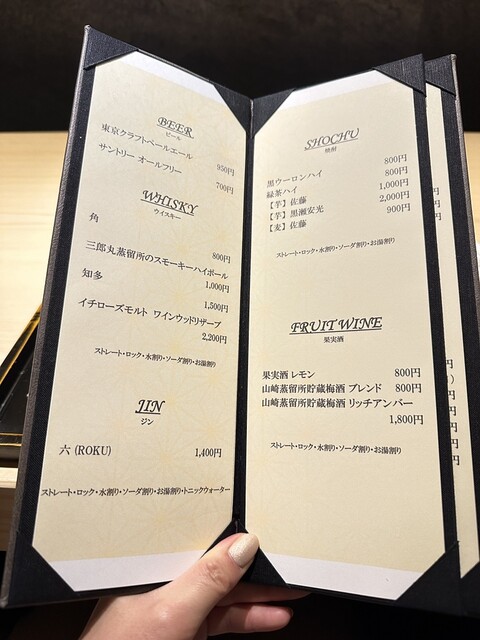 BEER
ビール
東京クラフトペールエール
950円
サントリー オールフリー
700円
WHISKY
ウイスキー
角
800円
三郎丸蒸留所のスモーキーハイボール
1,000円
知多
1,500円
イチローズモルト ワインウッドリザーブ
2,200円
ストレート・ロック・水割り・ソーダ割り・お湯割り
JIN
ジン
六 (ROKU) 1,400円
ストレート・ロック・水割り・ソーダ割り・お湯割り・トニックウォーター
SHOCHU
焼酎
黒ウーロンハイ 800円
緑茶ハイ 800円
【芋】佐藤 1,000円
【芋】黒瀬安光 2,000円
【麦】佐藤 900円
ストレート・ロック・水割り・ソーダ割り・お湯割り
FRUIT WINE
果実酒
果実酒 レモン 800円
山崎蒸留所貯蔵梅酒 ブレンド 800円
山崎蒸留所貯蔵梅酒 リッチアンバー
1,800円
ストレート・ロック・水割り・ソーダ割り・お湯割り